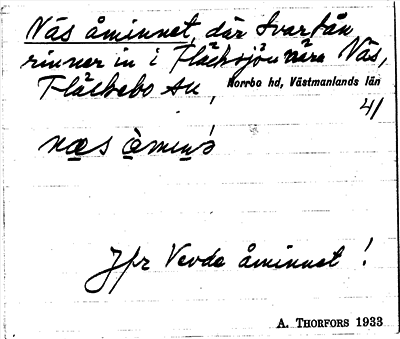 Näs åminnet, där Svartån
rinner in i Fläcksjön nära Näs,
Fläckebo sn, Norrbo hd, Västmanlands län
41
Jfr Vevde åminnet !
A. THORFORS 1933